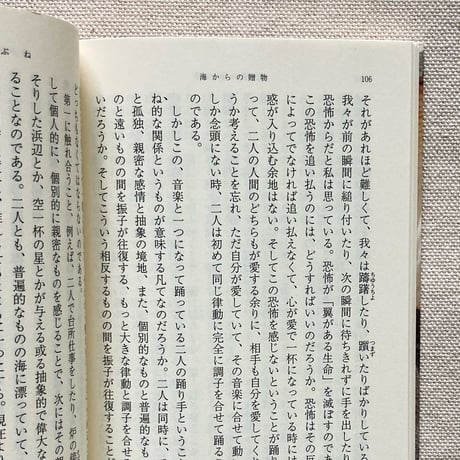 106
海からの贈物
それがあれほど難しくて、我々は躊躇したり、躓いたりばかりしている
我々が前の瞬間に縋り付いたり、次の瞬間に待ちきれずに手を出したり
恐怖からだと私は思っている。恐怖が「翼がある生命」を滅ぼすのであ
この恐怖を追い払うのには、どうすればいいのだろうか。恐怖はその
によってでなければ追い払えなくて、心が愛で一杯になっている時には
惑が入り込む余地はない。そしてこの恐怖を感じないということが踊
って、二人の人間のどちらもが愛する余りに、相手も自分を愛してく
うか考えることを忘れ、ただ自分が愛していて、その音楽に
しか念頭にない時、二人は初めて同じ律動に完全に調子を合せて踊
のである。
しかしこの、音楽と一つになって踊っている二人の踊り手と
ね的な関係というものが意味する凡てなのだろうか。二人は同時に、
と孤独、親密な感情と抽象の境地、また、個別的なものと普遍的なも
のと遠いものの間を振子が往復する、もっと大きな律動と調子を合せて
いだろうか。そしてこういう相反するものの間を振子が往復する
ぶね
どっちもなくてはならないのである。
第一に触れ合うこと、例えば、二人で台所仕事をしたり、炉の
して個人的に、個別的に親密なものを感じることで、次にはその
そりした浜辺とか、空一杯の星とかが与える或る抽象的で偉大な
ることなのである。二人とも、普遍的なものの海に漂っていて、